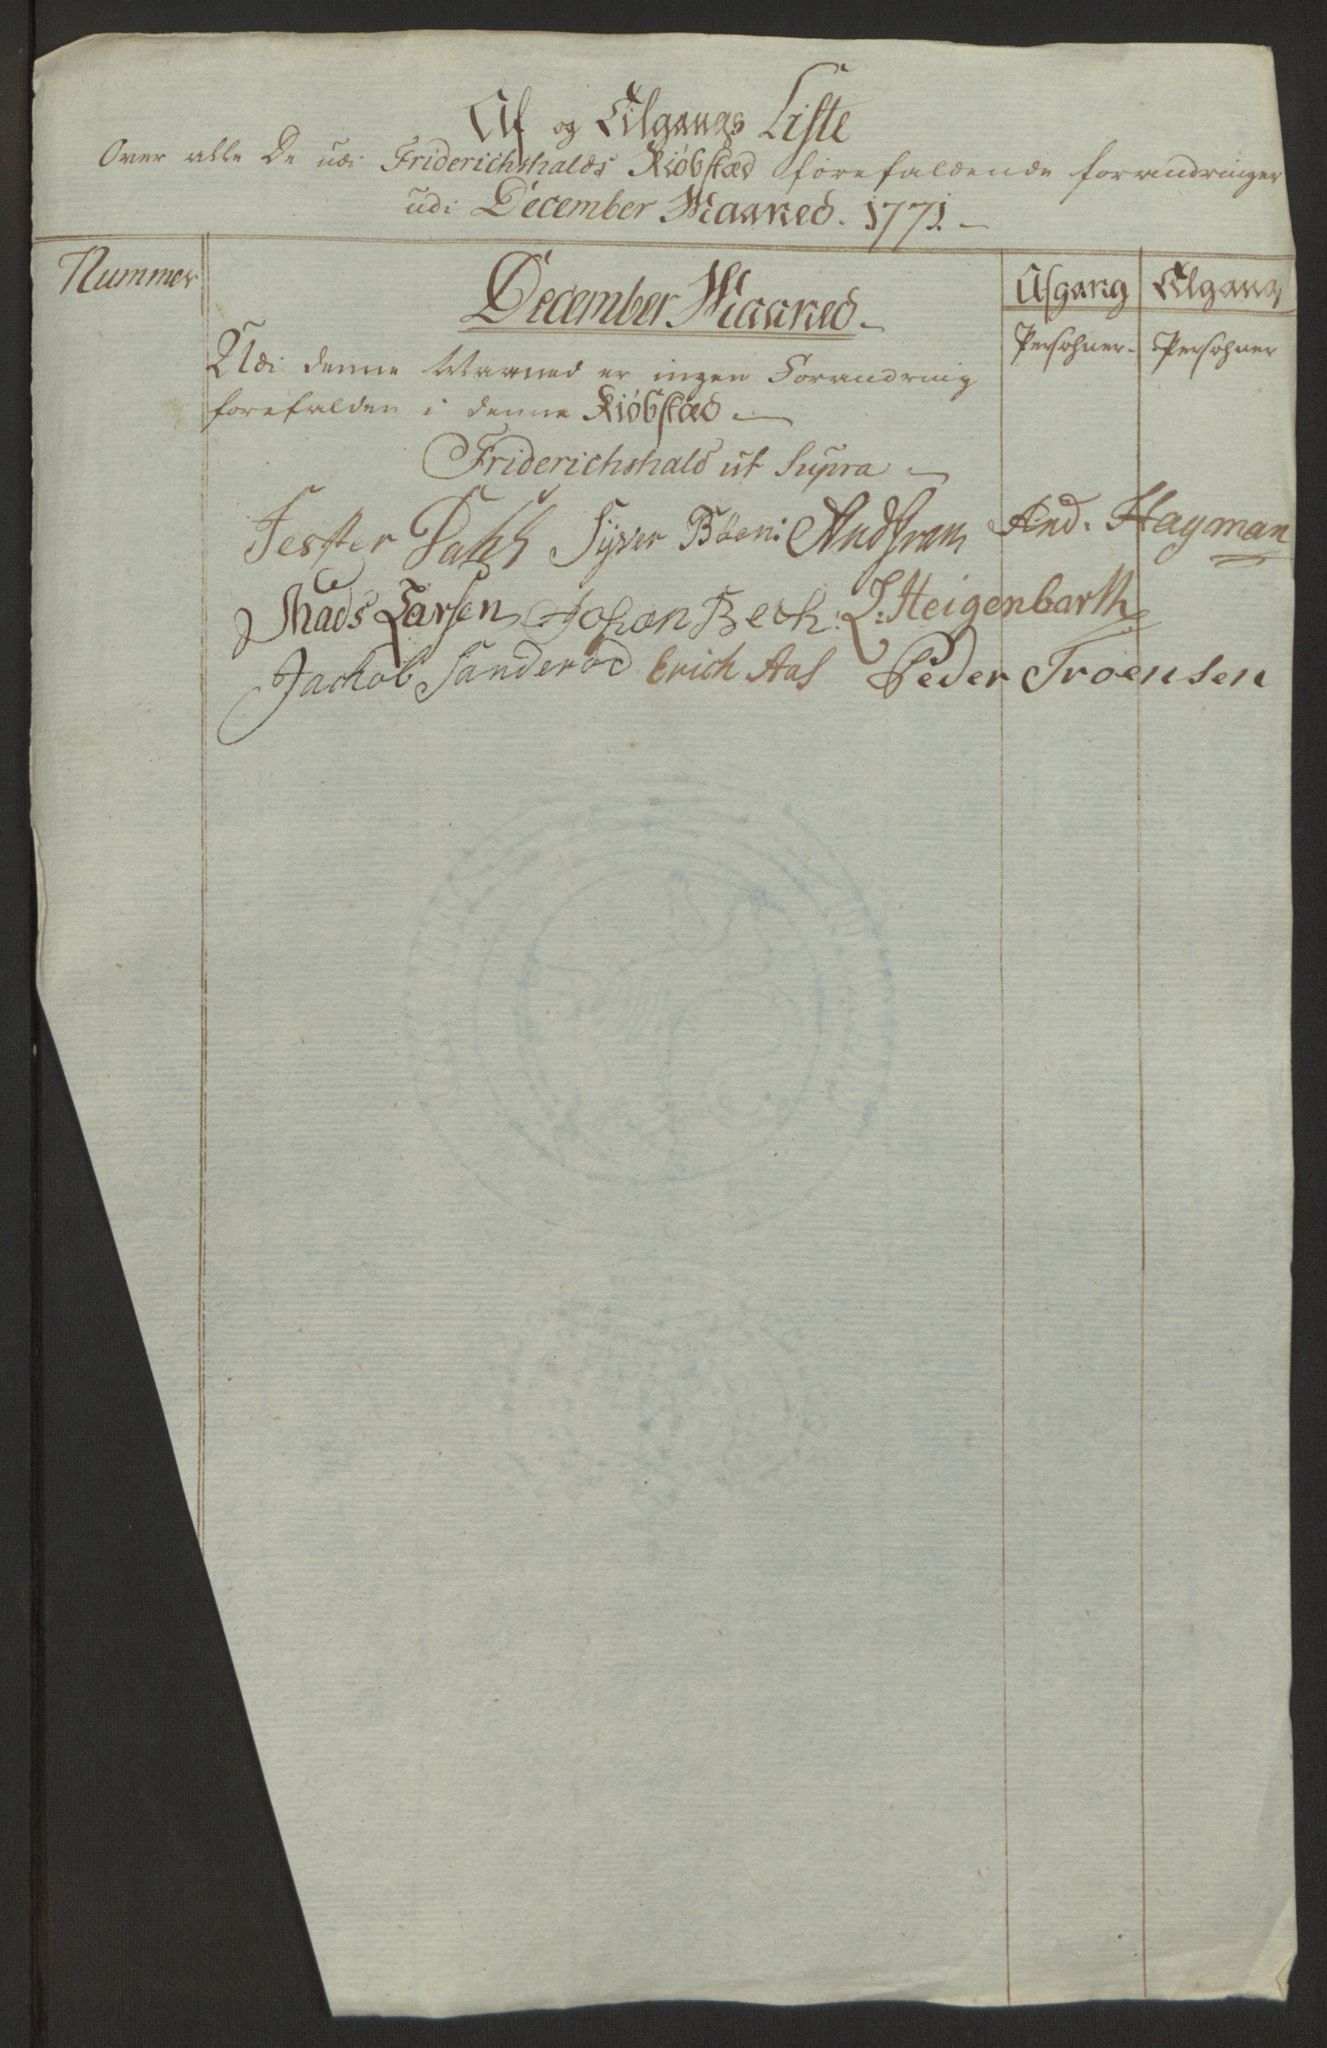 Af og Tilgangs Liste
Over alle De udi Friderichshalds Kiöbstæd forefaldende forandringer
udi December Maaned. 1771.
Nummer
December Maaned.
Afgang Tilgang
Persohner. Persohner
Udi denne Maaned er ingen Forandring
forefalden i denne Kiöbstæd
Friderichshald ut Supra
Jester Dahl Syver Boen: And. Hagman
Mads Larsen Johan Bech: L: Heigenbarth
Jackob Sanderød Erich Aas Peder Troensen